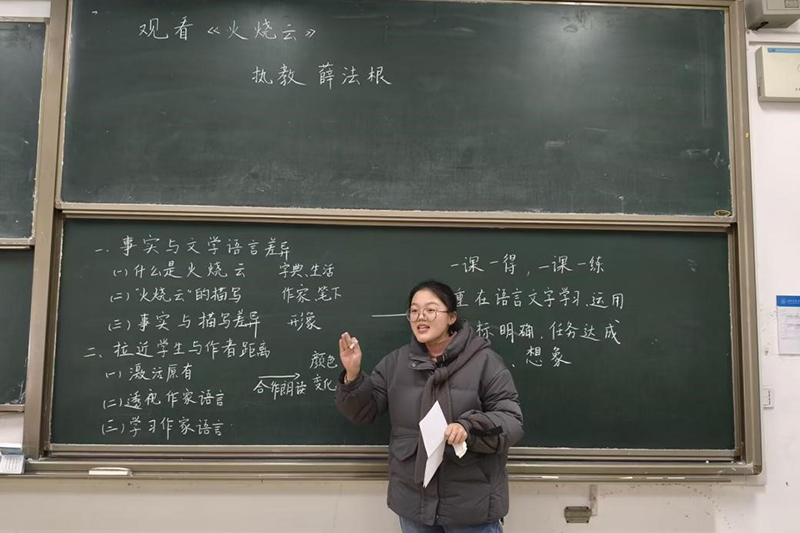 观看《火烧云》
执教 薛法根
一、事实与文学语言差异
(一)什么是火烧云 字典、生活
(二)"火烧云"的描写 作家、笔下
(三)事实与描写差异 形象
二、拉近学生与作者距离
(一)激活原有
(二)透视作家语言
(三)学习作家语言
合作朗读
颜色
变化
一课一得,一课一练
重在语言文字学习、运用
标明确、任务达成
、想象